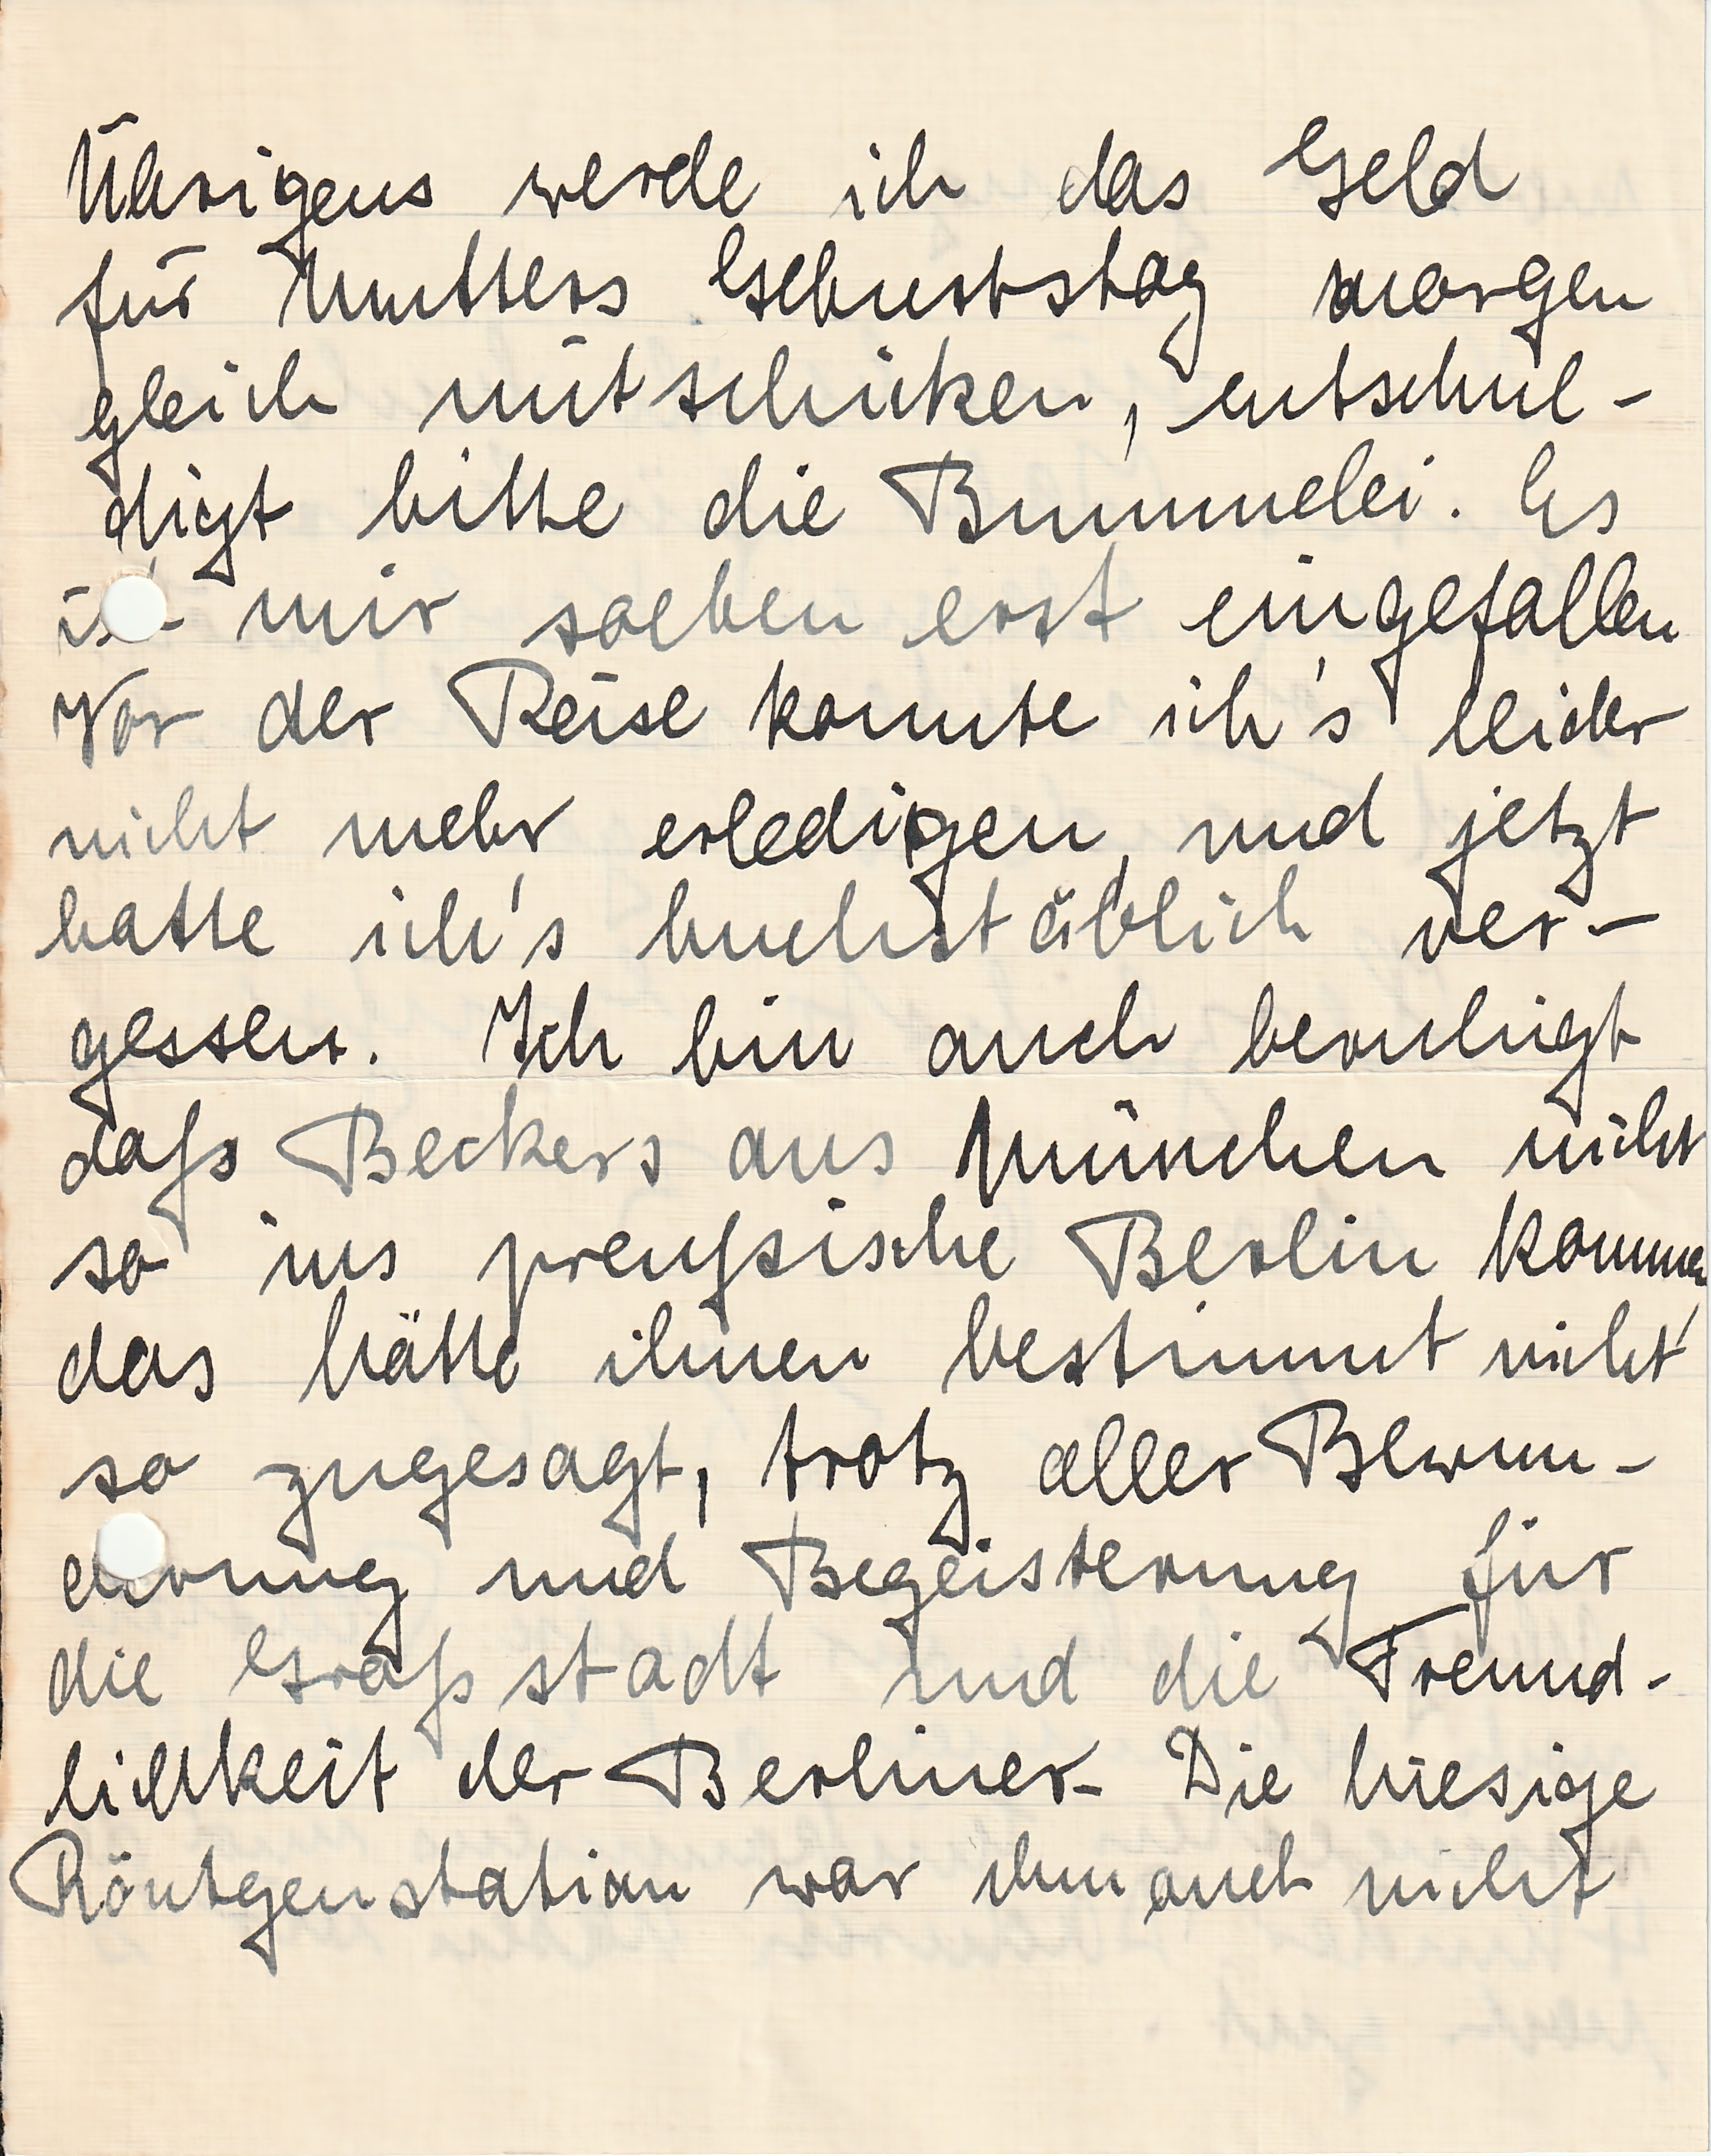 Übrigens werde ich das Geld
für Mutters Geburtstag morgen
gleich mitschicken, entschul-
digt bitte die Bummelei. Es
ist mir soeben erst eingefallen
Vor der Reise konnte ich's leider
nicht mehr erledigen, und jetzt
hatte ich's buchstäblich ver-
gessen. Ich bin auch beruhigt
daß Beckers aus München nicht
so ins preußische Berlin kommen,
das hätte ihnen bestimmt nicht
so zugesagt, trotz aller Bewun-
derung und Begeisterung für
die Großstadt und die Freund-
lichkeit der Berliner. Die hiesige
Röntgenstation war ihm auch nicht